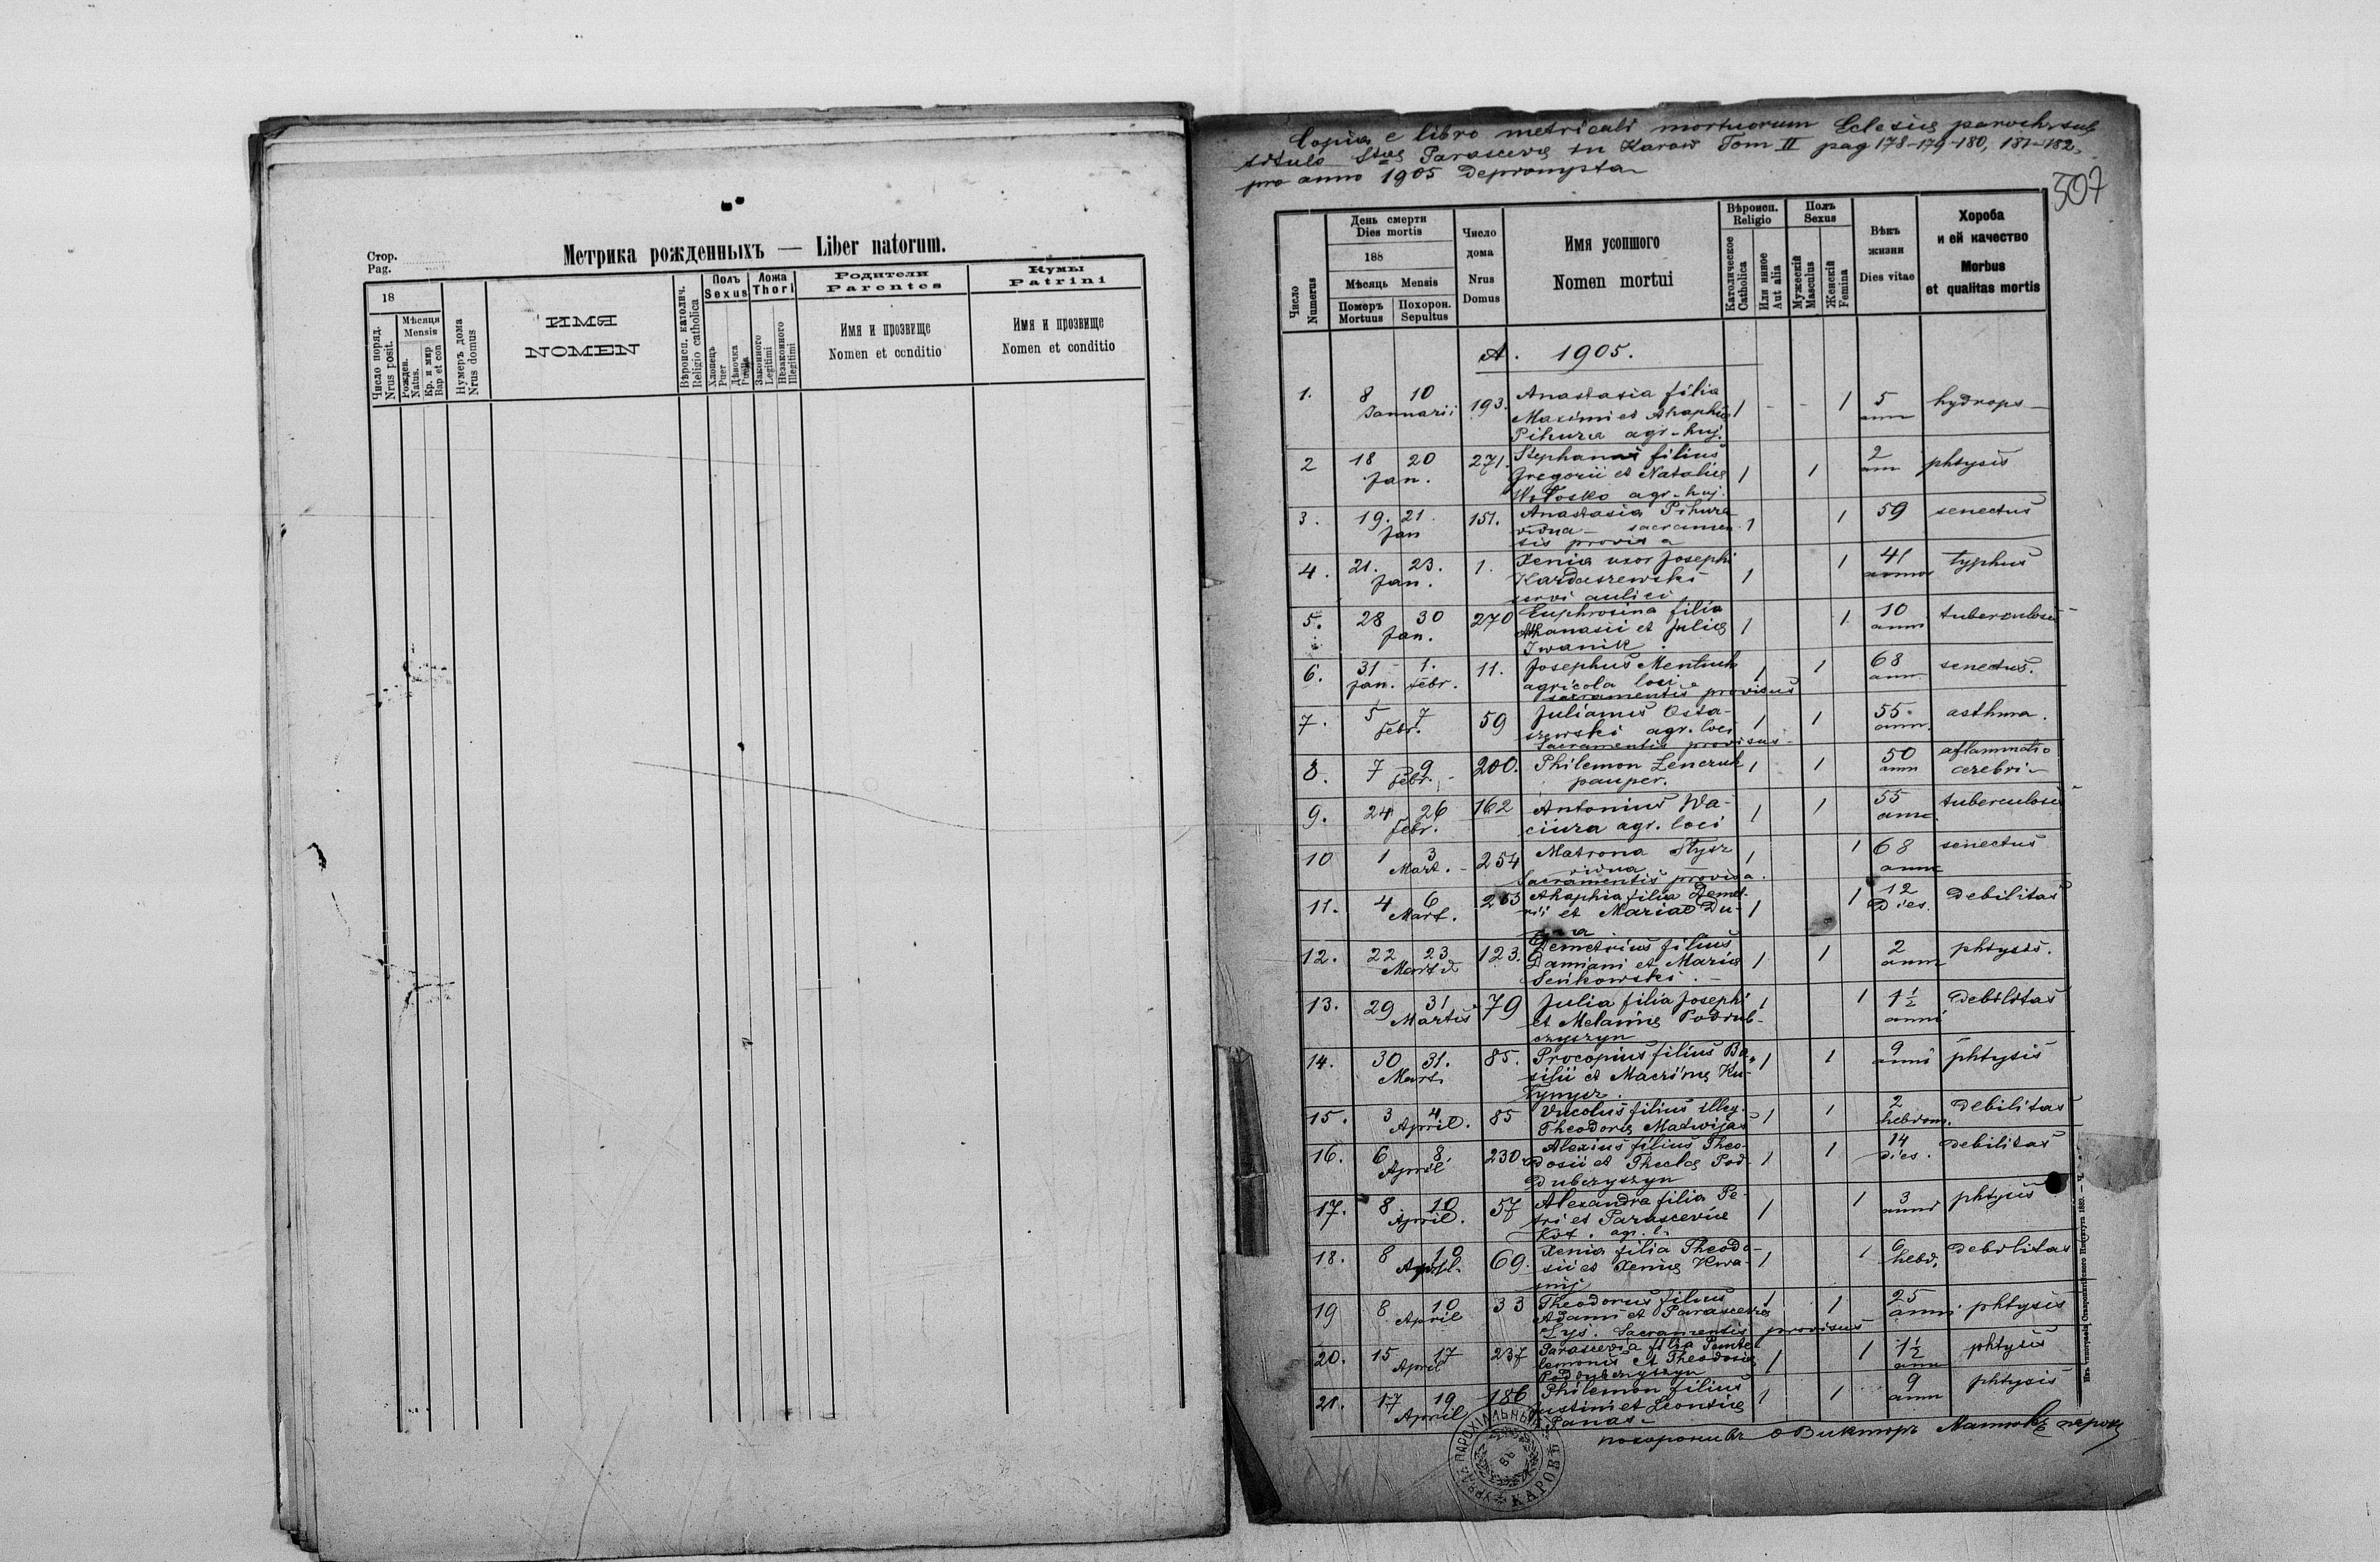 Стор.
Pag.
Метрика рожденныхъ — Liber natorum.
18
Число поряд.
Nrus posit.
Мѣсяця
Mensis
Рожден.
Natus.
Кр. и мир
Bap. et con
Нумеръ дома
Nrus domus
ИМЯ
NOMEN
Вѣроисп. католич.
Religio catholica
Полъ
Sexus
Хлопець
Puer
Дѣвочка
Puella
Ложа
Thori
Законного
Legitimi
Незаконного
Illegitimi
Родители
Parentes
Имя и прозвище
Nomen et conditio
Кумы
Patrini
Имя и прозвище
Nomen et conditio
Copia e libro metricali mortuorum Eclesiae paroch. sub
titulo Stae Parasceviae in Karow Tom II pag 178-179-180, 181-182,
pro anno 1905 deprompta
507
Число
Numerus
День смерти
Dies mortis
188
Мѣсяць Mensis
Померъ
Mortuus
Похорон.
Sepultus
Число
дома
Nrus
Domus
Имя усопшого
Nomen mortui
Вѣроисп.
Religio
Католическое
Catholica
Или инное
Aut alia
Полъ
Sexus
Мужескій
Masculus
Женскій
Femina
Вѣкъ
жизни
Dies vitae
Хороба
и ей качество
Morbus
et qualitas mortis
A. 1905.
1. 8 10 193. Anastasia filia 1 - - 1 5 hydrops
Januarii Maximi et Ahaphiae ann
Pihura agr. huj.
2 18 20 271. Stephanus filius 1 1 2 phtysis
Jan. Gregorii et Nataliae ann
Wołosko agr. huj.
3. 19. 21. 151. Anastasia Pihura 1 1 59 senectus
Jan vidua - sacramen
tis provisa
4. 21. 23. 1. Xenia uxor Josephi 1 1 41 typhus
Jan. Kardaszewski annor
servi aulici
5. 28 30 270 Euphrosina filia 1 1 10 tuberculosis
Jan. Athanasii et Juliae annor
Iwanik.
6. 31 1. 11. Josephus Mentuch 1 1 68 senectus.
Jan. Febr. agricola loci ann
sacramentis provisus
7. 5 7 59 Julianus Osta- 1 1 55. asthma.
Febr. szewski agr. loci ann.
Sacramentis provisus
8. 7 9 200. Philemon Lenczuk 1 1 50 aflammatio
Febr. pauper. ann cerebri
9. 24 26 162 Antonius Wa- 1 1 55 tuberculosis
Febr. ciura agr. loci ann.
10 1 3 254 Matrona Stysz 1 1 68 senectus
Mart. vidua ann
Sacramentis provisa.
11. 4 6 253 Ahaphia filia Demet- 1 1 12 debilitas
Mart. rii et Mariae Du- dies.
12. 22 23 123. Demetrius filius 1 1 2 phtysis.
Martii Damiani et Mariae ann
Seńkowski.
13. 29 31 79 Julia filia Josephi 1 1 1½ debilitas
Martii et Melaniae Poddub- anni
czyszyn
14. 30 31. 85. Procopius filius Ba- 1 1 9 phtysis
Mart. silii et Macrinae Ku- anni
15. 3 4 85 Vucolus filius illeg. 1 1 2 debilitas
April. Theodorae Matwijas hebdom.
16. 6 8 230 Alexius filius Theo- 1 1 14 debilitas
April dosii et Theclae Pod- dies.
dubczyszyn
17. 8 10 57 Alexandra filia Pe- 1 1 3 phtysis
April. tri et Parasceviae anni
Kot. agr. l.
18. 8 10 69. Xenia filia Theodo- 1 1 6 debilitas
April. sii et Xeniae Kwa- hebd.
snij
19 8 10 33 Theodorus filius 1 1 25 phtysis
April Adami et Parasceviae anni
Lys. Sacramentis provisus
20. 15 17 237 Parascevia filia Pante- 1 1 1½ phtysis
April lemonis et Theodosiae anni
Poddubczyszyn
21. 17 19 186 Philemon filius 1 1 9 phtysis
April Justini et Leontiae ann
Panas
похоронивъ о Викторъ Матюкъ парох
КАРОВѢ
Изъ типографіи Ставропигійского Института 1889. — Ч.